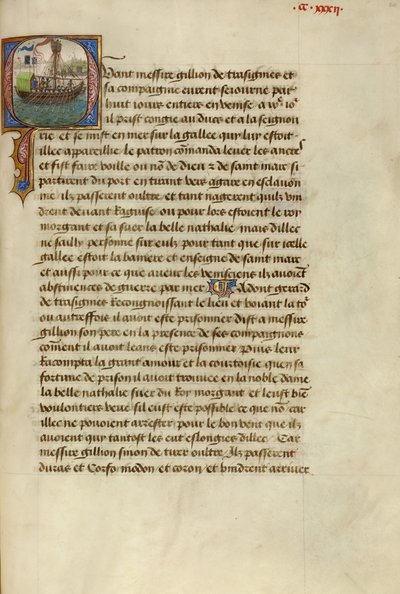 CC XXXII.
Quant messire gillion de trasignies et
sa compaignie eurent seiourne par
huit iours entiers en venise a viiie ior
il prist congie au ducz et a la seignou
rie et se mist en mer sur la gallee quy luy estoit
illec appareillie le patron comanda leuer les ancres
et fist faire voille ou nō de dieu z de saint marc si
partirent du port en tirant vers agare en esclauon
nie, ilz passerent oultre et tant nagerent quilz vin
drent deuant raguise ou pour lors estoient le roy
morgant et sa suer la belle nathalie, mais dillec
ne sailly personne sur eulz pour tant que sur icelle
gallee estoit la baniere et enseigne de saint marc
et aussi pour ce que aueuc les venisciens ilz auoiēt
abstinences de guerre par mer Adont gerard
de trasignies recongnoissant le lieu et voiant la tor
ou autreffois il auoit este prisonnier dist a messire
gillion son pere en la presence de ses compaignons
cōment il auoit leans este prisonnier Puis leur
racompta la grant amour et la courtoisie que en sa
fortune de prison il auoit trouuee en la noble dame
la belle nathalie suer du roy morgant et leust biē
voulentiers veue sil eust este possible ce que nō car
illec ne pouoient arrester pour le bon vent que ilz
auoient quy tantost les eut eslongies dillec Car
messire gillion sinon de tirer oultre Ilz passerent
duras et Corfo modon et coron et vindrent arriuer